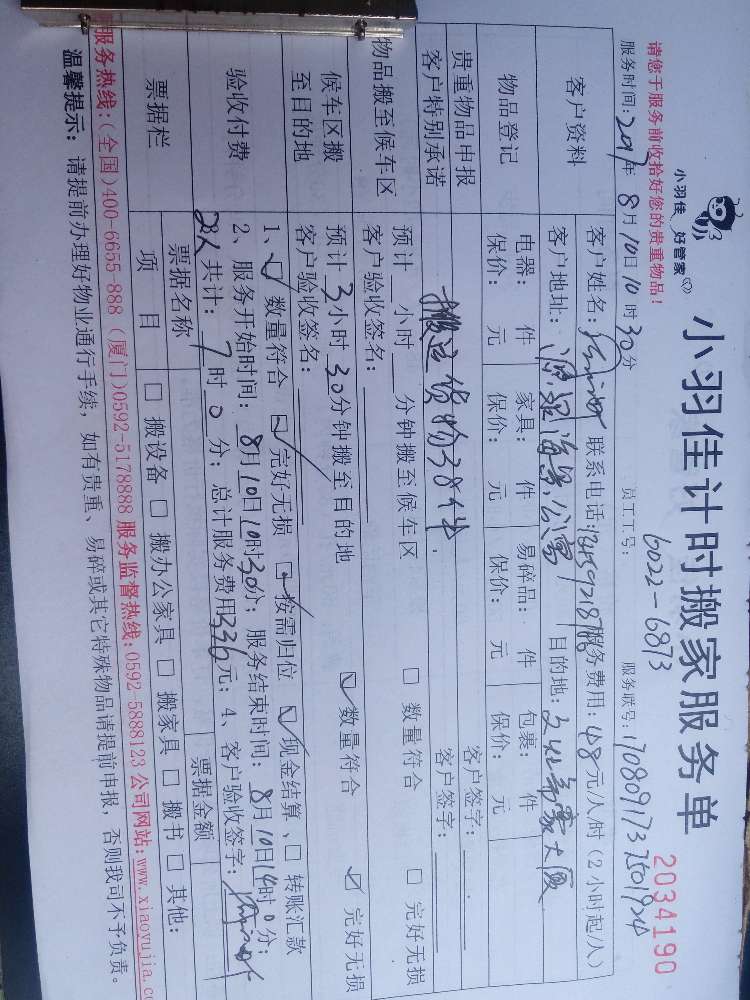 小羽佳 好管家
小羽佳计时搬家服务单
请您于服务前收拾好您的贵重物品!
6022-6873
2034190
服务时间:2017年8月10日10时30分 员工工号: 服务联号:170809173750192
客户资料
客户姓名: 联系电话: 服务费用:48元/人/时(2小时起/人)
客户地址: 海景公寓 目的地: 大厦
物品登记
电器: 件 家具: 件 易碎品: 件 包裹: 件
保价: 元 保价: 元 保价: 元 保价: 元
贵重物品申报 客户签字:
客户特别承诺 搬运货物38件. 客户签字:
物品搬至候车区
预计 小时 分钟搬至候车区 □ 数量符合 □ 完好无损
客户验收签名:
候车区搬至目的地
预计3小时30分钟搬至目的地 ☑ 数量符合 ☑ 完好无损
客户验收签名:
验收付费
1、☑ 数量符合 ☑ 完好无损 ☑ 按需归位 ☑ 现金结算、□ 转账汇款
2、服务开始时间:8月10日10时30分;服务结束时间:8月10日14时0分;
2人共计:7时0分;总计服务费用336元;4、客户验收签字:
票据栏
票据名称 票据金额
项 目 □ 搬设备 □ 搬办公家具 □ 搬家具 □ 搬书 □ 其他:
服务热线:(全国)400-6655-888 (厦门)0592-5178888 服务监督热线:0592-5888123 公司网站:www.xiaoyujia.co
温馨提示: 请提前办理好物业通行手续,如有贵重、易碎或其它特殊物品请提前申报,否则我司不予负责。